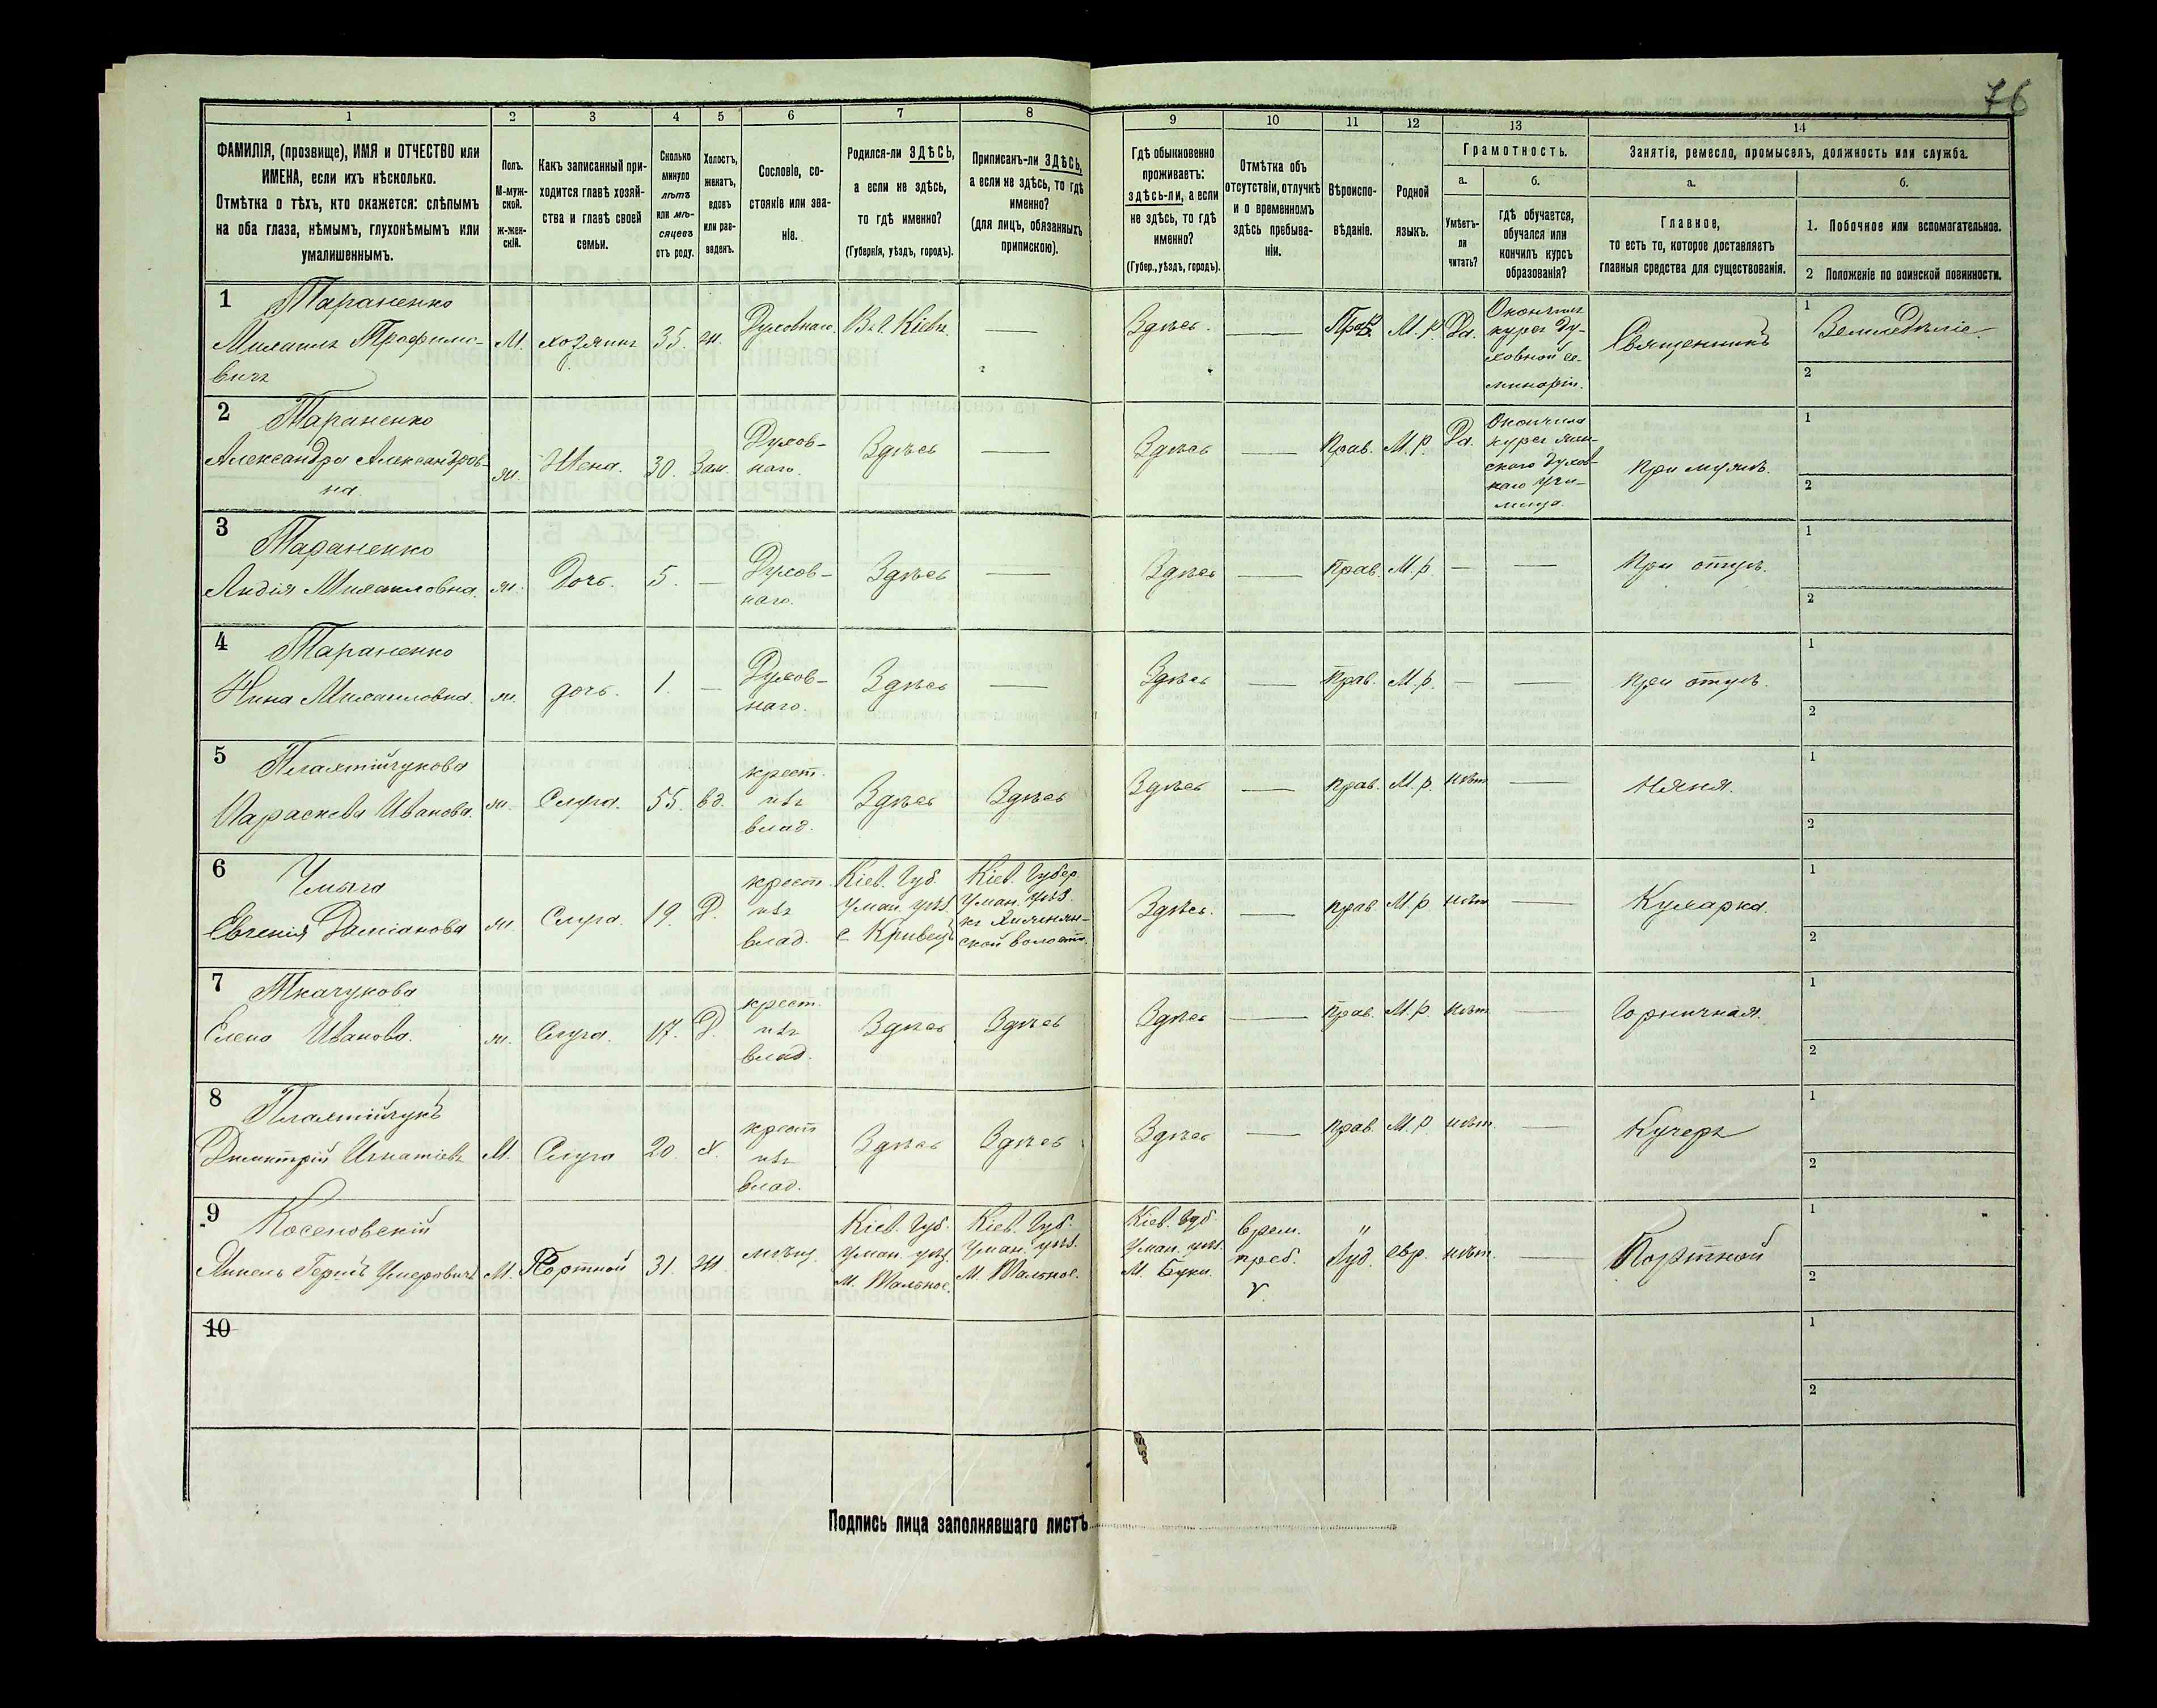 76
1 2 3 4 5 6 7 8 9 10 11 12 13 14
ФАМИЛІЯ, (прозвище), ИМЯ и ОТЧЕСТВО или
ИМЕНА, если ихъ нѣсколько.
Отмѣтка о тѣхъ, кто окажется: слѣпымъ
на оба глаза, нѣмымъ, глухонѣмымъ или
умалишеннымъ.
Полъ.
М-муж-
ской.
Ж-жен-
скій.
Какъ записанный при-
ходится главѣ хозяй-
ства и главѣ своей
семьи.
Сколько
минуло
лѣтъ
или мѣ-
сяцевъ
отъ роду.
Холостъ,
женатъ,
вдовъ
или раз-
веденъ.
Сословіе, со-
стояніе или зва-
ніе.
Родился-ли ЗДѢСЬ,
а если не здѣсь,
то гдѣ именно?
(Губернія, уѣздъ, городъ).
Приписанъ-ли ЗДѢСЬ,
а если не здѣсь, то гдѣ
именно?
(для лицъ, обязанныхъ
припискою).
Гдѣ обыкновенно
проживаетъ:
здѣсь-ли, а если
не здѣсь, то гдѣ
именно?
(Губер., уѣздъ, городъ).
Отмѣтка объ
отсутствіи, отлучкѣ
и о временномъ
здѣсь пребыва-
ніи.
Вѣроиспо-
вѣданіе.
Родной
языкъ.
Грамотность.
а.
Умѣетъ-
ли
читать?
б.
гдѣ обучается,
обучался или
кончилъ курсъ
образованія?
Занятіе, ремесло, промыселъ, должность или служба.
а.
Главное,
то есть то, которое доставляетъ
главныя средства для существованія.
б.
1. Побочное или вспомогательное.
2 Положеніе по воинской повинности.
1 Тараненко
Михаилъ Трофимо-
вичъ
М.
хозяинъ
35.
ж.
Духовнаго.
В г. Кіевѣ.
—
Здѣсь.
—
Прав.
М. р.
Да.
Окончилъ
курсъ Ду-
ховной се-
минаріи.
Священникъ
1
Земледѣліе
2
2 Тараненко
Александра Александров-
на.
ж.
Жена.
30.
Зам.
Духов-
наго.
Здѣсь
—
Здѣсь
—
Прав.
М. р.
Да.
Окончила
курсъ
Духов-
наго Учи-
лища.
При мужѣ.
1
2
3 Тараненко
Лидія Михаиловна.
ж.
Дочь.
5.
—
Духов-
наго.
Здѣсь
—
Здѣсь
—
Прав.
М. р.
—
—
При отцѣ.
1
2
4 Тараненко
Нина Михаиловна.
ж.
дочь.
1.
—
Духов-
наго.
Здѣсь
—
Здѣсь
—
Прав.
М. р.
—
—
При отцѣ.
1
2
5 Плахтійчукова
Параскева Иванова.
ж.
Слуга.
55.
вд.
крест.
изъ
влад.
Здѣсь
Здѣсь
Здѣсь
—
прав.
М. р.
нѣт
—
Няня.
1
2
6
Евгенія Даміанова
ж.
Слуга.
19.
Д.
крест.
изъ
влад.
Кіев. Губ.
Уман. уѣз.
с. Кривецъ
Кіев. Губер.
Уман. уѣз.
волости.
Здѣсь.
—
прав.
М. р.
нѣт
—
Кухарка.
1
2
7 Ткачукова
Елена Иванова.
ж.
Слуга.
17.
Д.
крест.
изъ
влад.
Здѣсь
Здѣсь
Здѣсь
—
прав.
М. р.
нѣт
—
Горничная.
1
2
8 Плахтійчукъ
Димитрій Игнатіевъ
М.
Слуга
20.
х.
крест
изъ
влад.
Здѣсь
Здѣсь
Здѣсь
—
прав.
М. р.
нѣт
—
Кучеръ
1
2
9 Косеновскій
Янкель Гершъ Умеровичъ
М.
Портной
31.
ж.
мѣщ.
Кіев. Губ.
Уман. уѣз.
М. Тальное.
Кіев. Губ.
Уман. уѣз.
М. Тальное.
Кіев. Губ
Уман. уѣз.
М. Буки.
врем.
преб.
"
Іуд.
евр.
нѣт.
—
Портной
1
2
10
1
2
Подпись лица заполнявшаго листъ